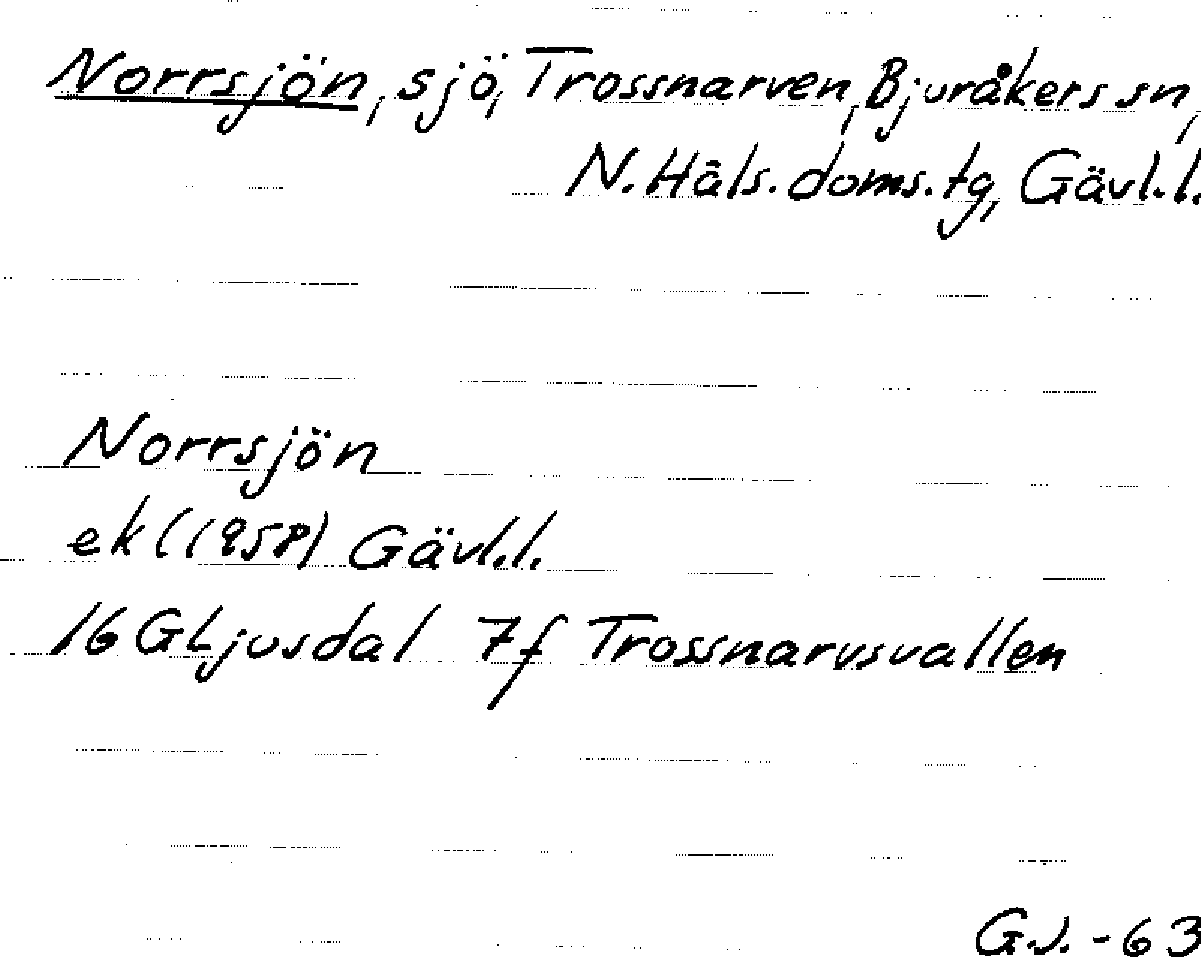 Norrsjön, sjö, Trossnarven, Bjuråkers sn,
N. Häls. doms. tg, Gävl. l.
Norrsjön
ek (1958) Gävl. l.
16 G Ljusdal 7f Trossnarvsvallen
G.J. -63